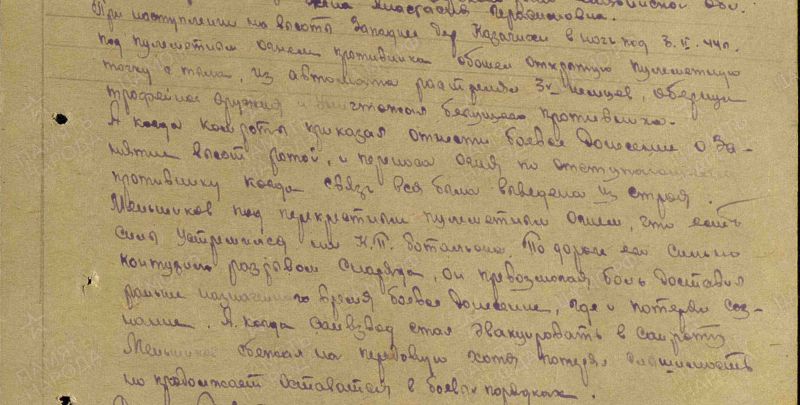 Анастасия Герасимовна.
При наступлении на высоты Западнее дер. в ночь под 3.II.44г.
под пулеметным огнем противника обошел открытую пулеметную
точку с тыла, из автомата расстрелял 3х немцев,
трофейное оружия и уничтожал бегущего противника.
А когда комроты приказал отнести боевое Донесение о за-
нятии высот ротой, и переноса огня по отступающему
противнику когда связь вся была выведена из строя.
Меньшиков под перекрестным пулеметным огнем, что есть
силы устремился на К.П. батальона. По дороге его сильно
контузило разрывом снаряда, он превозмогая боль доставил
раньше назначенного время боевое Донесение, где и потерял соз-
нание. А когда санвзвод стал эвакуировать в санроту
Меньшиков сбежал на передовую хотя потерял слышимость
но продолжает оставаться в боевых порядках.